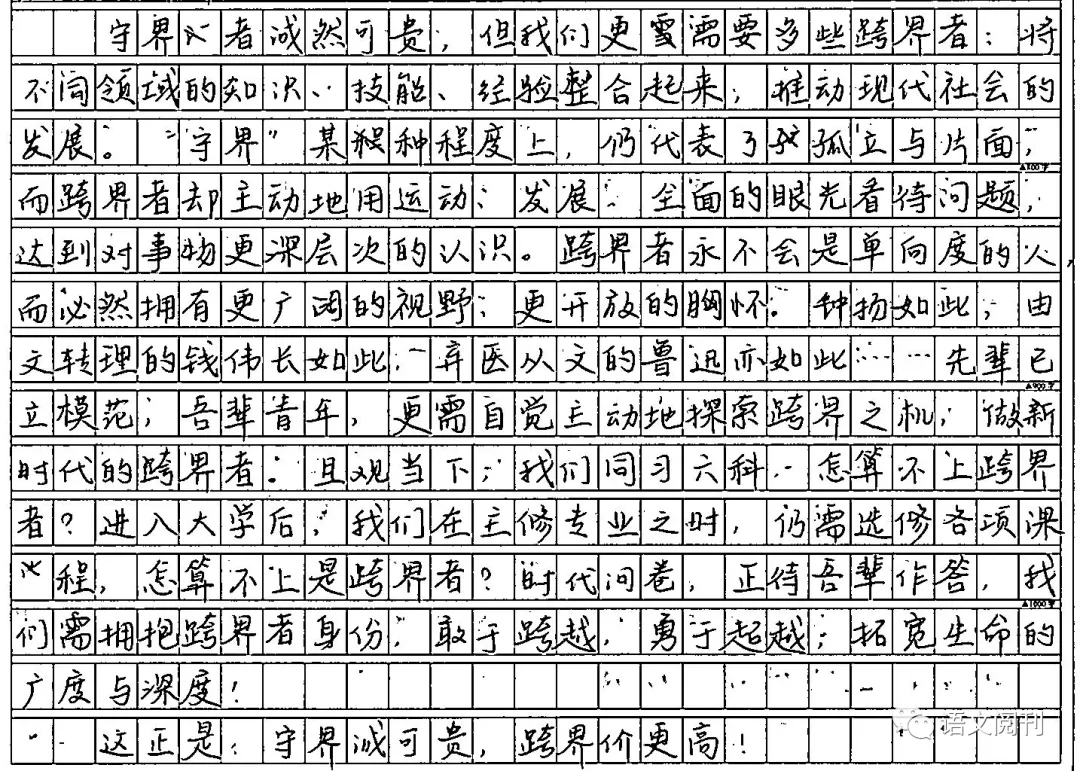 守界者诚然可贵，但我们更需要多些跨界者：将
不同领域的知识、技能、经验整合起来，推动现代社会的
发展。“守界”某种程度上，仍代表了孤立与片面，
▲800字
而跨界者却主动地用运动、发展、全面的眼光看待问题，
达到对事物更深层次的认识。跨界者永不会是单向度的人，
而必然拥有更广阔的视野，更开放的胸怀。种扬如此，由
文转理的钱伟长如此，弃医从文的鲁迅亦如此……先辈已
▲900字
立模范，吾辈青年，更需自觉主动地探索跨界之机，做新
时代的跨界者。且观当下，我们同习六科，怎算不上跨界
者？进入大学后，我们在主修专业之时，仍需选修各项课
程，怎算不上是跨界者？时代问卷，正待吾辈作答，我
▲1000字
们需拥抱跨界者身份，敢于跨越，勇于超越，拓宽生命的
广度与深度！
这正是：守界诚可贵，跨界价更高！
语文阅刊